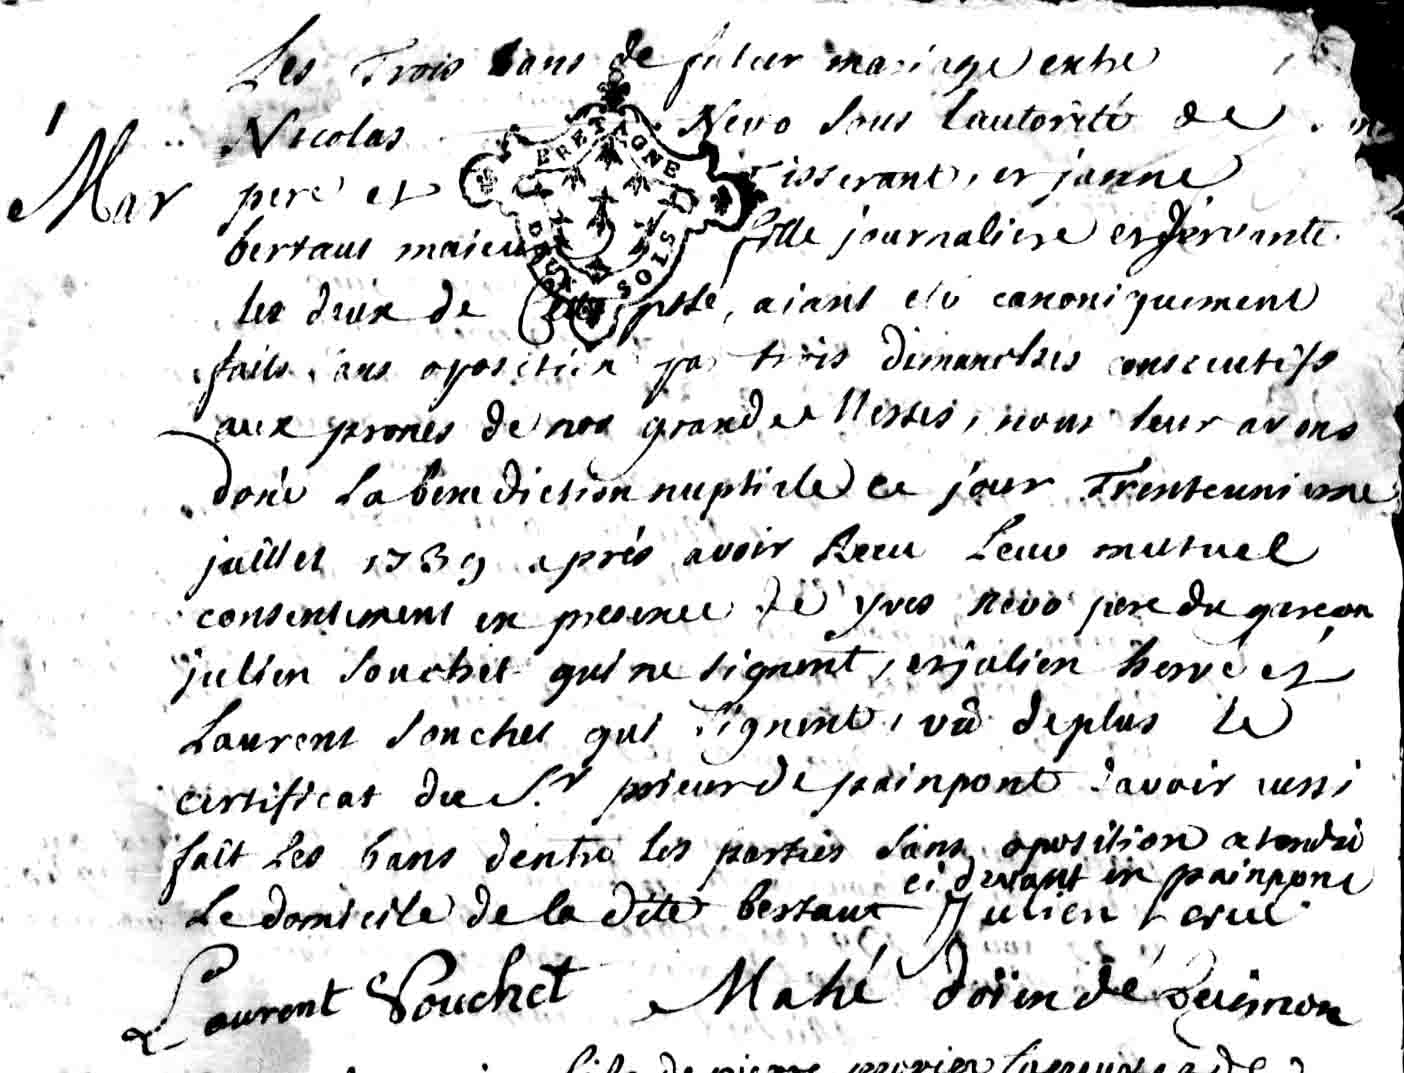 Les Trois bans de futur mariage entre
Nicolas Nevo sous lautorité de son
Mar
pere et tisserant, et janne
bertaut maieure fille journaliere et servante
BRETAGNE
DEUX SOLS
les deux de cette psse, aiant eté canoniquement
faits sans oposition par trois dimanches consecutifs
aux prones de nos grandes Messes, nous leur avons
doné La benediction nuptiale ce jour Trenteunieme
juillet 1739 aprés avoir Receu Leur mutuel
consentement en presence de yves nevo pere du garçon
julien souchet qui ne signent, et julien hervé et
Laurent souchet qui signent, vû deplus le
certificat du Sr prieur de painpont davoir aussi
fait Les bans dentre les parties sans oposition atendu
ci devant en painpont
Le domicile de la dite bertaut Julien hervé
Laurent Souchet Mahé doïen dé